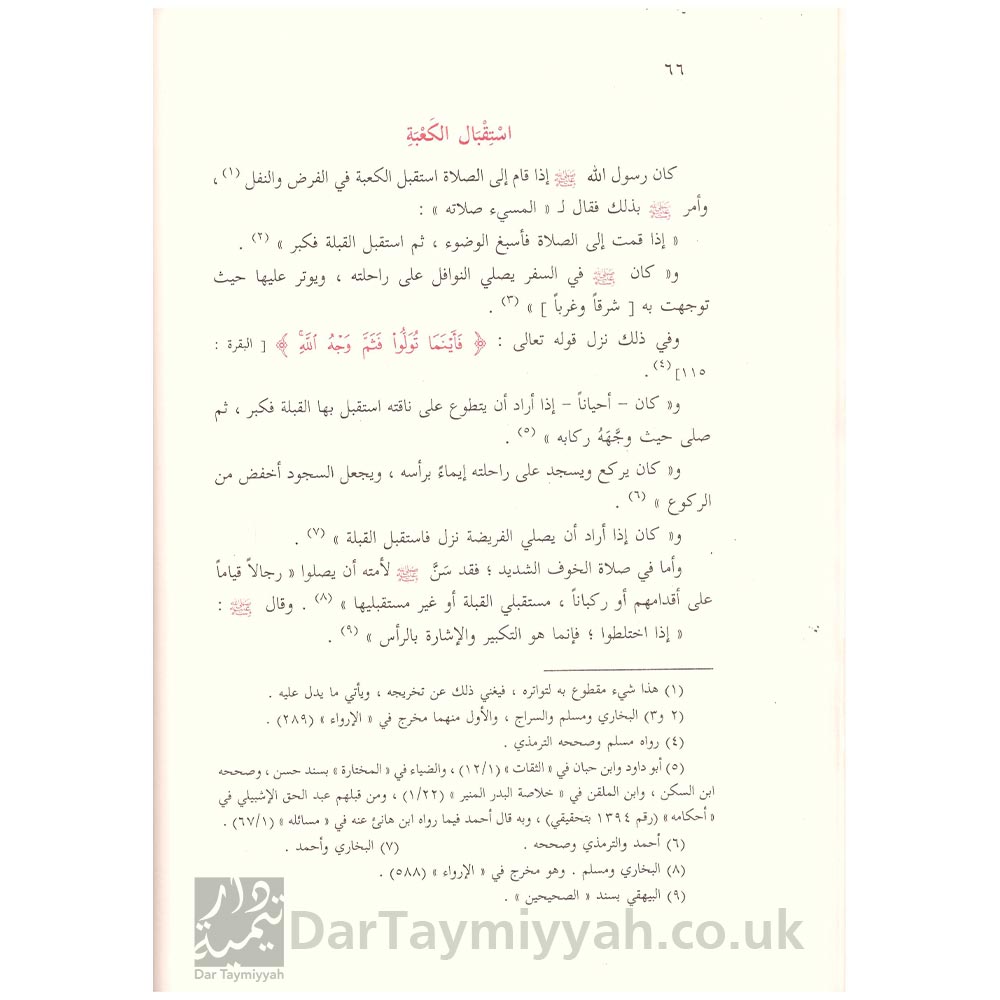 ٦٦
اسْتِقْبَال الكَعْبَةِ
كان رسول الله ﷺ إذا قام إلى الصلاة استقبل الكعبة في الفرض والنفل (١) ،
وأمر ﷺ بذلك فقال لـ « المسيء صلاته » :
« إذا قمت إلى الصلاة فأسبغ الوضوء ، ثم استقبل القبلة فكبر » (٢) .
و« كان ﷺ في السفر يصلي النوافل على راحلته ، ويوتر عليها حيث
توجهت به [ شرقاً وغرباً ] » (٣) .
وفي ذلك نزل قوله تعالى : ﴿ فَأَيْنَمَا تُوَلُّواْ فَثَمَّ وَجْهُ ٱللَّهِۚ ﴾ [ البقرة :
١١٥] (٤) .
و« كان – أحياناً – إذا أراد أن يتطوع على ناقته استقبل بها القبلة فكبر ، ثم
صلى حيث وجَّهَهُ ركابه » (٥) .
و« كان يركع ويسجد على راحلته إيماءً برأسه ، ويجعل السجود أخفض من
الركوع » (٦) .
و« كان إذا أراد أن يصلي الفريضة نزل فاستقبل القبلة » (٧) .
وأما في صلاة الخوف الشديد ؛ فقد سَنَّ ﷺ لأمته أن يصلوا « رجالاً قياماً
على أقدامهم أو ركباناً ، مستقبلي القبلة أو غير مستقبليها » (٨) . وقال ﷺ :
« إذا اختلطوا ؛ فإنما هو التكبير والإشارة بالرأس » (٩) .
(١) هذا شيء مقطوع به لتواتره ، فيغني ذلك عن تخريجه ، ويأتي ما يدل عليه .
(٢ و٣) البخاري ومسلم والسراج ، والأول منهما مخرج في « الإرواء » (٢٨٩) .
(٤) رواه مسلم وصححه الترمذي .
(٥) أبو داود وابن حبان في « الثقات » (١٢/١) ، والضياء في « المختارة » بسند حسن ، وصححه
ابن السكن ، وابن الملقن في « خلاصة البدر المنير » (١/٢٢) ، ومن قبلهم عبد الحق الإشبيلي في
« أحكامه » (رقم ١٣٩٤ بتحقيقي) ، وبه قال أحمد فيما رواه ابن هانئ عنه في « مسائله » (٦٧/١) .
(٦) أحمد والترمذي وصححه . (٧) البخاري وأحمد .
(٨) البخاري ومسلم . وهو مخرج في « الإرواء » (٥٨٨) .
(٩) البيهقي بسند « الصحيحين » .
دار تيمية
Dar Taymiyyah
DarTaymiyyah.co.uk